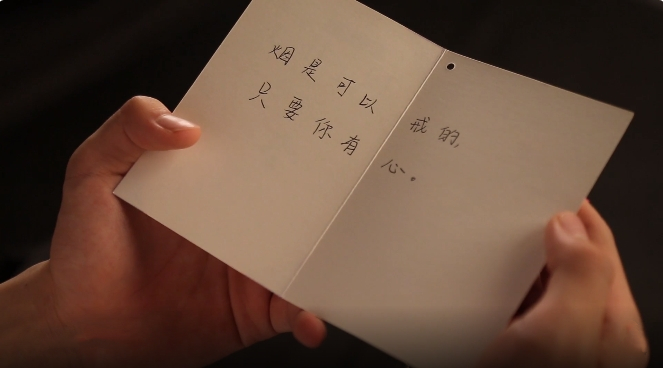 烟是可以戒的,
只要你有心。